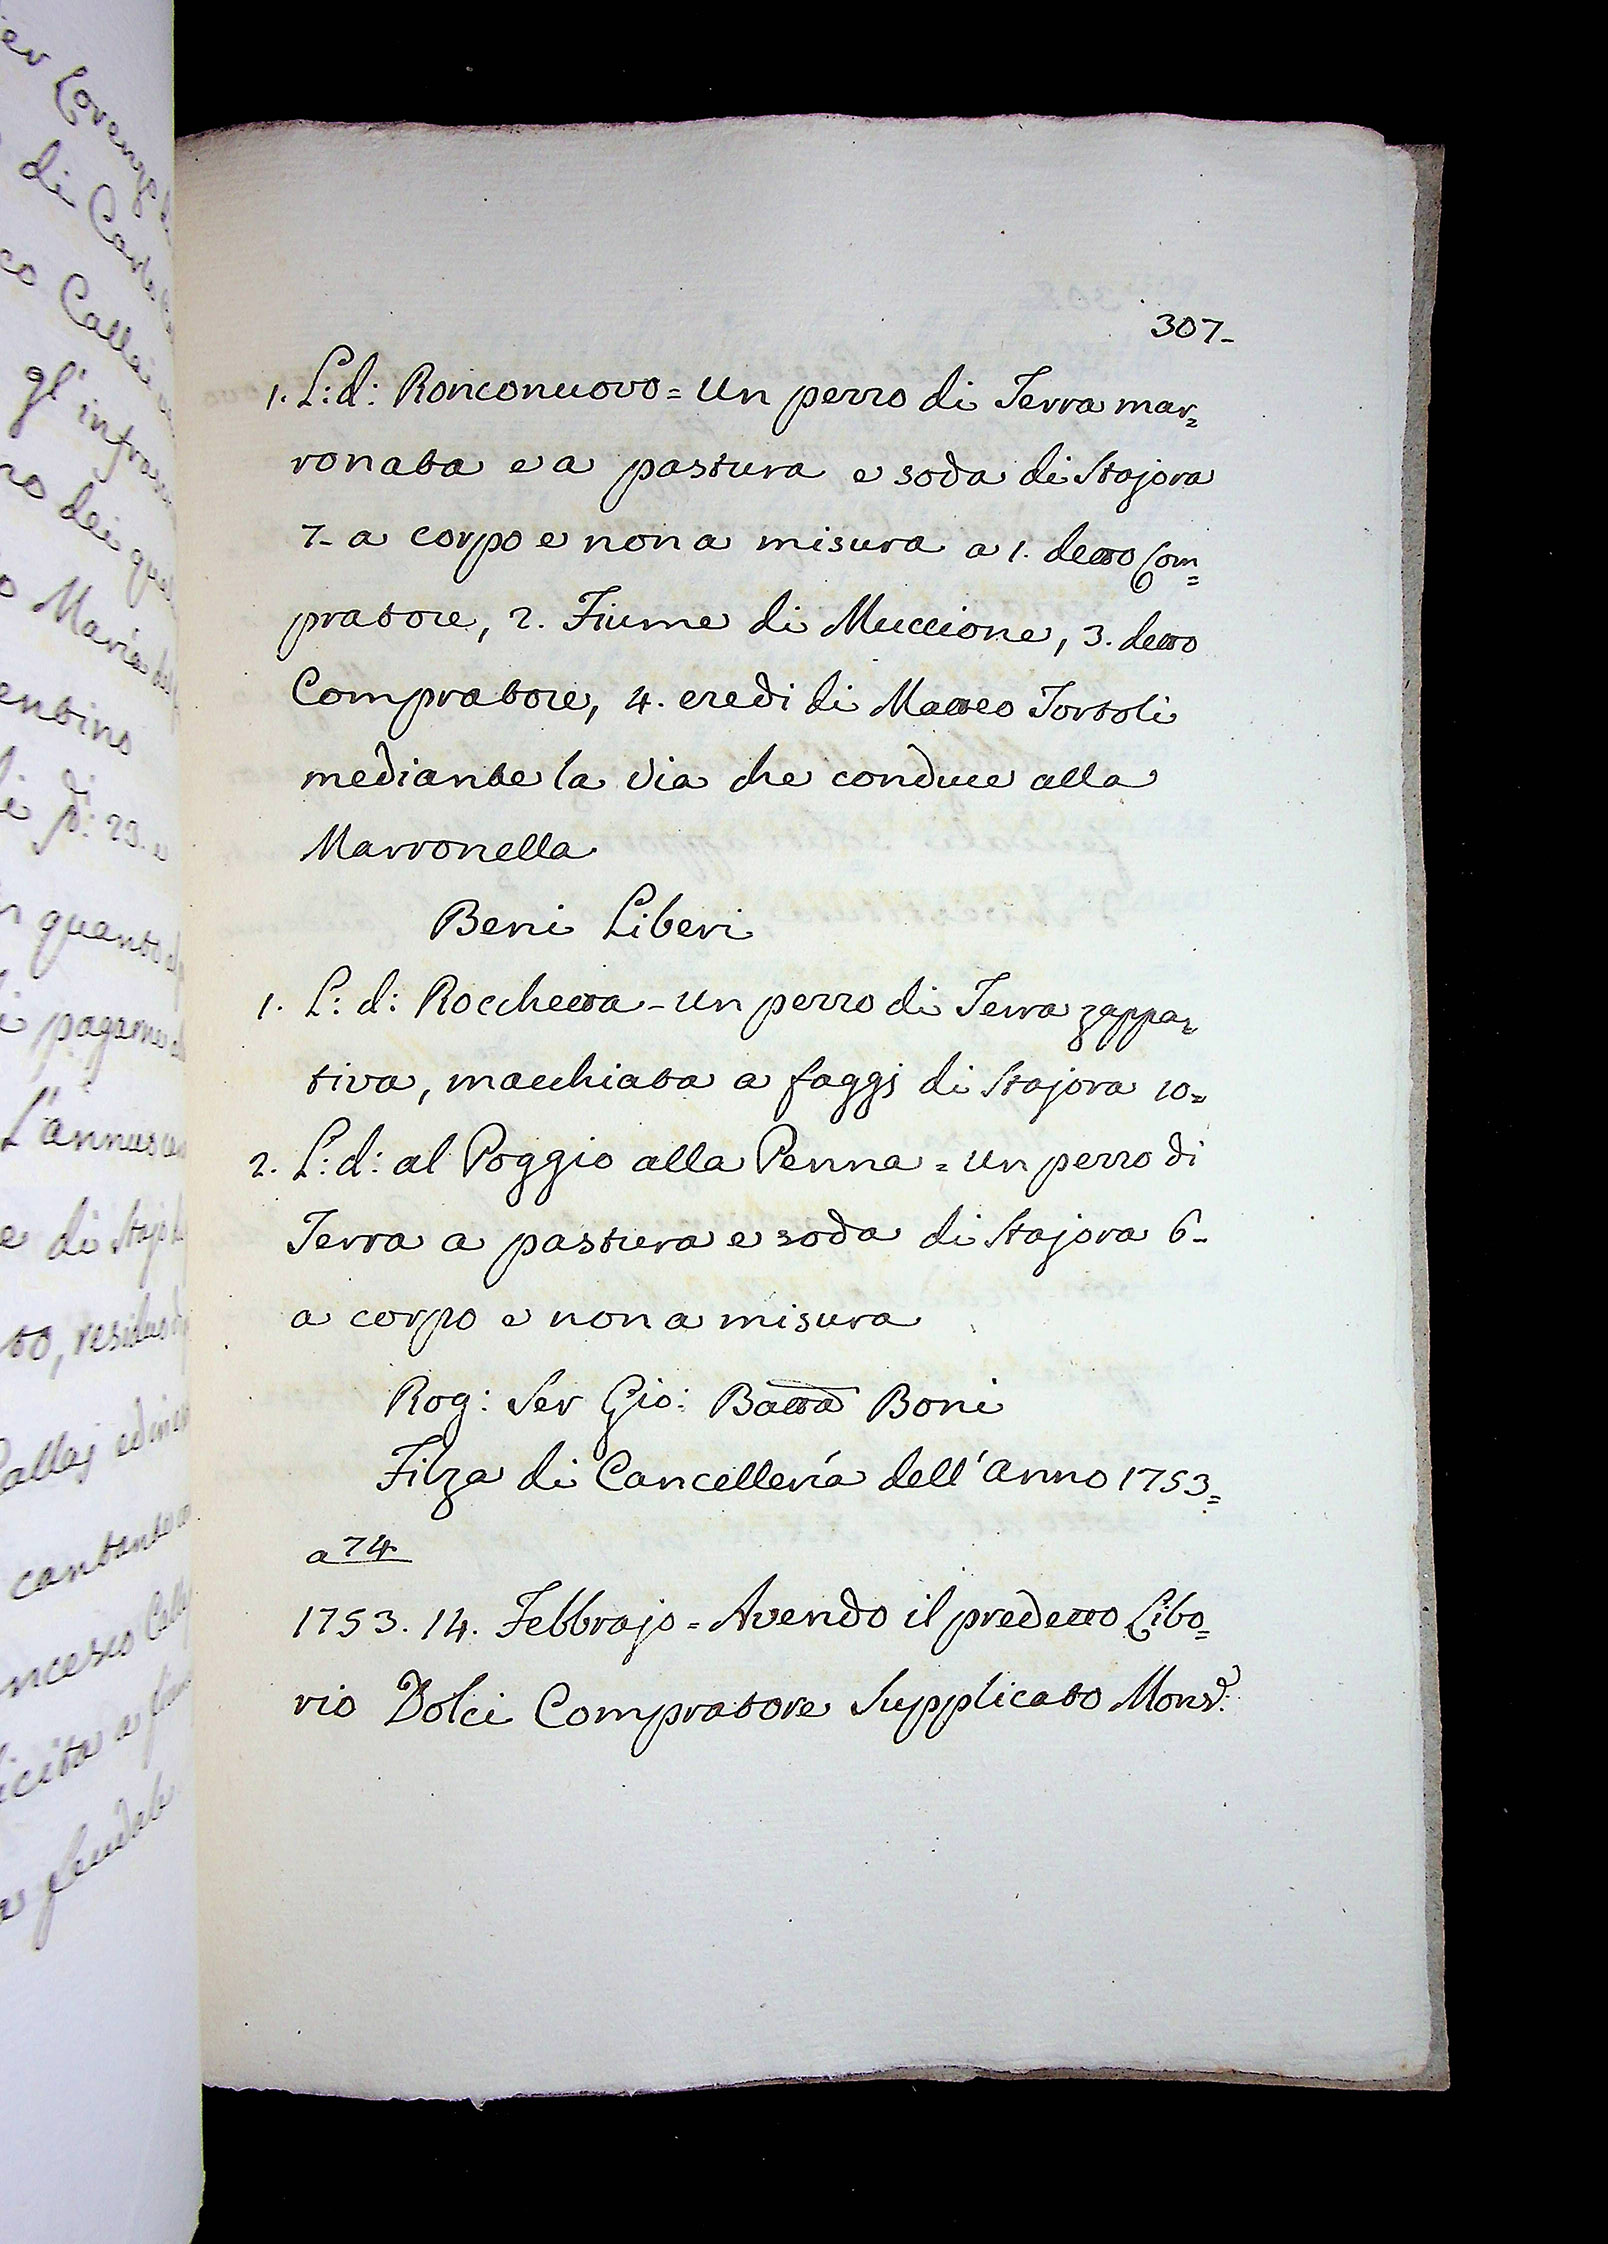 307-
1. L: d: Ronconuovo = Un pezzo di Terra mar=
ronata e a pastura e soda di Stajora
7- a corpo e non a misura a 1. detto Com=
pratore, 2. Fiume di Muccione, 3. detto
Compratore, 4. eredi di Matteo Tortoli
mediante la via che conduce alla
Marronella
Beni Liberi
1. L: d: Rocchetta - Un pezzo di Terra zappa=
tiva, macchiata a faggi di Stajora 10=
2. L: d: al Poggio alla Penna = Un pezzo di
Terra a pastura e soda di Stajora 6-
a corpo e non a misura
Rog: Ser Gio: Batta Boni
Filza di Cancellería dell'Anno 1753=
a 74
1753. 14. Febbrajo = Avendo il predetto Libo=
rio Dolci Compratore Supplicato Monsr: